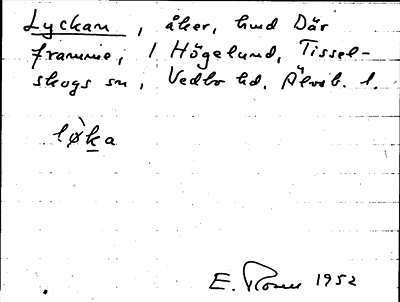 Lyckan, åker, hmd Där
framme, 1 Högelund, Tissel-
skogs sn, Vedbo hd, Älvsb. l.
lø̀ka
E. Rosen 1952